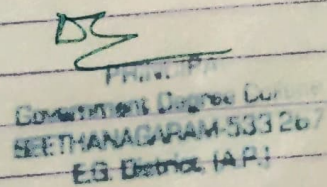 PRINCIPAL
Government Degree College
SEETHANAGARAM-533 287
E.G. District, (A.P.)